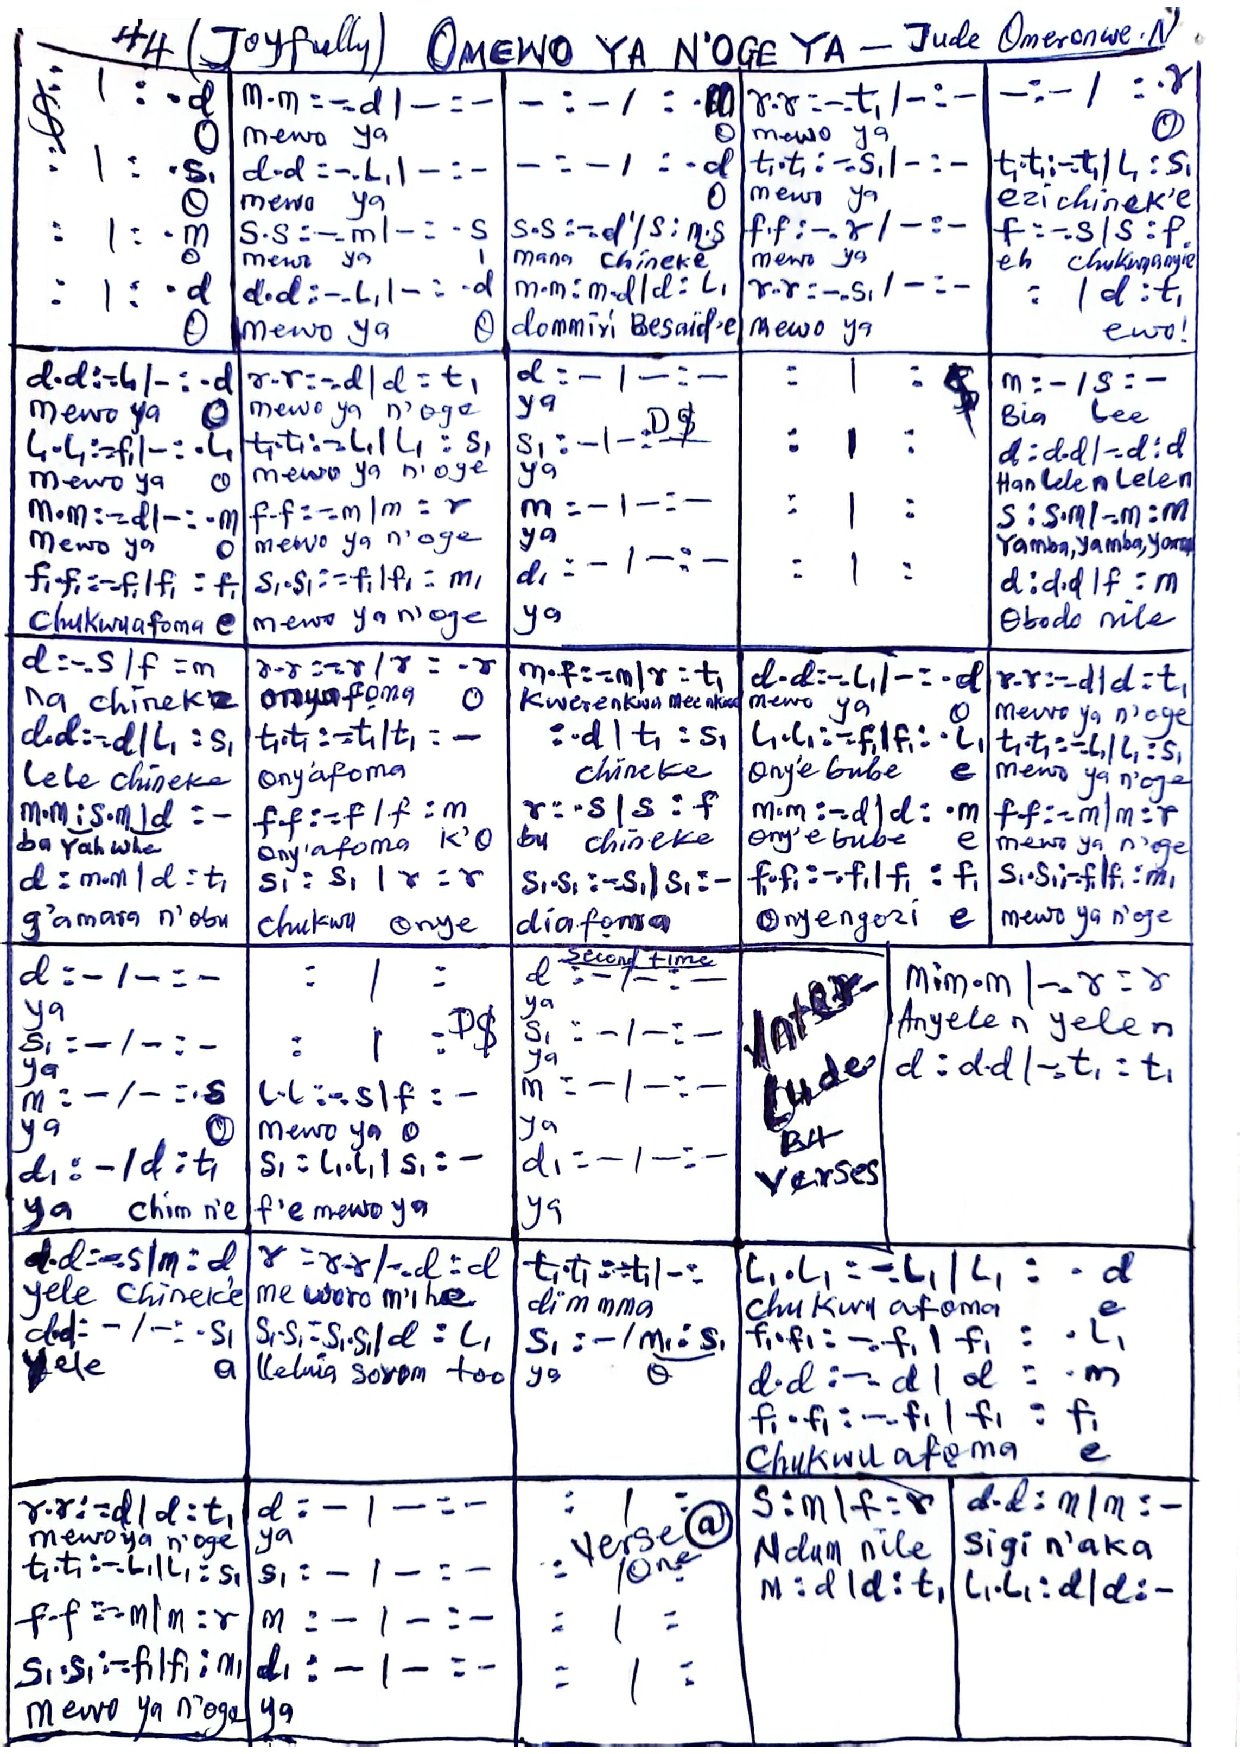 44 (Joyfully) OMEWO YA N'OGE YA – Jude Omeronwe .N.
$ : | : .d
O
: | : .s₁
O
: | : .m
O
: | : .d
O
m.m :-.d | - : -
mewo ya
d.d :-.L₁ | - : -
mewo ya
s.s :-.m | - : .s
mewo ya I
d.d :-.L₁ | - : .d
mewo ya O
- : - / : .m
O
- : - / : .d
O
s.s :-.d' / s : m.s
mana chineke
m.m : m.d | d : L₁
dommiri Besaid'e
r.r :-.t₁ / - : -
mewo ya
t₁.t₁ :-.s₁ | - : -
mewo ya
f.f :-.r / - : -
mewo ya
r.r :-.s₁ / - : -
mewo ya
- : - / : .r
O
t₁.t₁ :-.t₁ / L₁ : s₁
ezi chinek'e
f :-.s | s : f.
eh chukwuanyie
: | d : t₁
ewo!
d.d :-.L₁ | - : .d
mewo ya O
L₁.L₁ :-.f₁ | - : .L₁
mewo ya o
m.m :-.d | - : .m
mewo ya o
f₁.f₁ :-.f₁ | f₁ : f₁
Chukwuafoma e
r.r :-.d | d : t₁
mewo ya n'oge
t₁.t₁ :-.L₁ | L₁ : s₁
mewo ya n'oge
f.f :-.m | m : r
mewo ya n'oge
s₁.s₁ :-.f₁ | f₁ : m₁
mewo ya n'oge
d : - | - : -
ya
D$
s₁ : - | - : -
ya
m : - | - : -
ya
d₁ : - | - : -
ya
: | : $
: | :
: | :
: | :
m : - / s : -
Bia Lee
d : d.d | -.d : d
Han Lele n Lelen
s : s.m | -.m : m
Yamba, yamba, yamba
d : d.d | f : m
Obodo nile
d :-.s / f : m
na chineke
d.d :-.d | L₁ : s₁
Lele chineke
m.m : s.m | d : -
ba Yahwhe
d : m.m | d : t₁
g'amara n'obu
r.r :-.r / r : .r
onyafoma O
t₁.t₁ :-.t₁ | t₁ : -
Onyafoma
f.f :-.f / f : m
Ony'afoma K'O
s₁ : s₁ | r : r
chukwu onye
m.f :-.m | r : t₁
: .d | t₁ : s₁
chineke
r : .s | s : f
bu chineke
s₁.s₁ :-.s₁ | s₁ : -
diafoma
d.d :-.L₁ | - : .d
mewo ya O
L₁.L₁ :-.f₁ | f₁ : .L₁
Ony'e bube e
m.m :-.d | d : .m
Ony'e bube e
f₁.f₁ :-.f₁ | f₁ : f₁
Onyengozi e
r.r :-.d | d : t₁
mewo ya n'oge
t₁.t₁ :-.L₁ | L₁ : s₁
mewo ya n'oge
f.f :-.m | m : r
mewo ya n'oge
s₁.s₁ :-.f₁ | f₁ : m₁
mewo ya n'oge
d : - / - : -
ya
s₁ : - / - : -
ya
m : - / - : .s
ya O
d₁ : - / d : t₁
ya chim n'e
: | :
: | : D$
L.L :-.s | f : -
mewo ya o
s₁ : L₁.L₁ | s₁ : -
f'e mewo ya
second time
d : - / - : -
ya
s₁ : - | - : -
ya
m : - | - : -
ya
d₁ : - | - : -
ya
Inter-
Lude
B4
Verses
m : m.m | -.r : r
Anyele n yele n
d : d.d | -.t₁ : t₁
d.d :-.s | m : d
yele Chineke
d.d : - / - : .s₁
yele a
r : r.r / -.d : d
me woro m'ihe
s₁.s₁ : s₁.s₁ | d : L₁
lleluia sorom too
t₁.t₁ :-.t₁ | - :
dimmma
s₁ : - / m₁ : s₁
ya O
L₁.L₁ :-.L₁ | L₁ : .d
Chukwu afoma e
f₁.f₁ :-.f₁ | f₁ : .L₁
d.d :-.d | d : .m
f₁.f₁ :-.f₁ | f₁ : f₁
Chukwu afoma e
r.r :-.d | d : t₁
mewo ya n'oge
t₁.t₁ :-.L₁ | L₁ : s₁
f.f :-.m | m : r
s₁.s₁ :-.f₁ | f₁ : m₁
mewo ya n'oge
d : - | - : -
ya
s₁ : - | - : -
m : - | - : -
d₁ : - | - : -
ya
: | :
Verse @
: One
: | :
: | :
s : m | f : r
Ndum nile
m : d | d : t₁
d.d : m | m : -
Sigi n'aka
L₁.L₁ : d | d : -